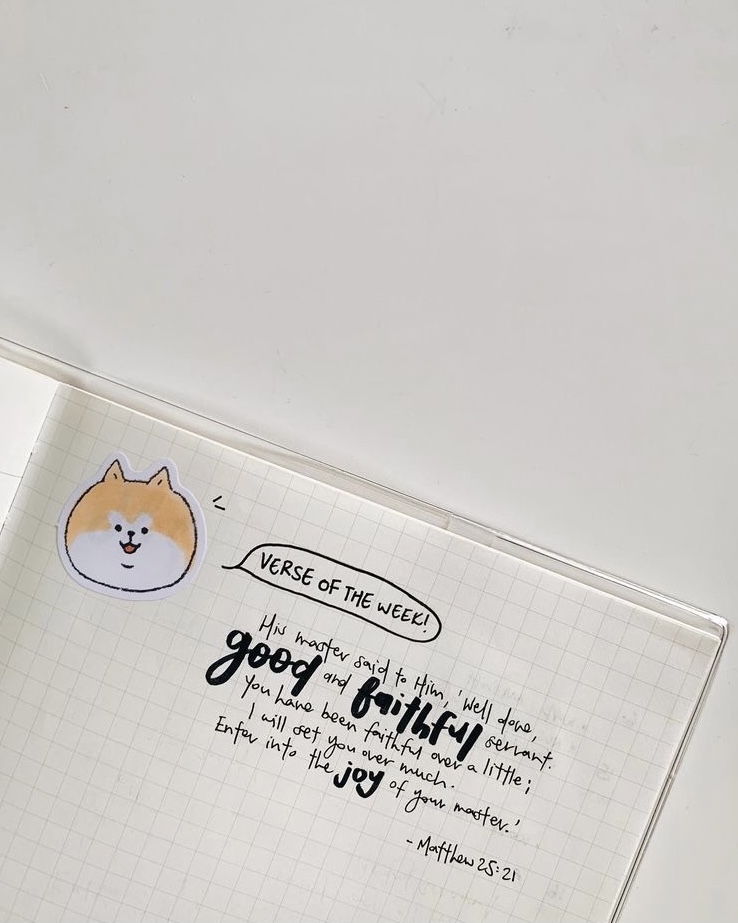 VERSE OF THE WEEK!
His master said to Him, 'Well done,
good and faithful servant.
You have been faithful over a little;
I will set you over much.
Enter into the joy of your master.'
- Matthew 25:21